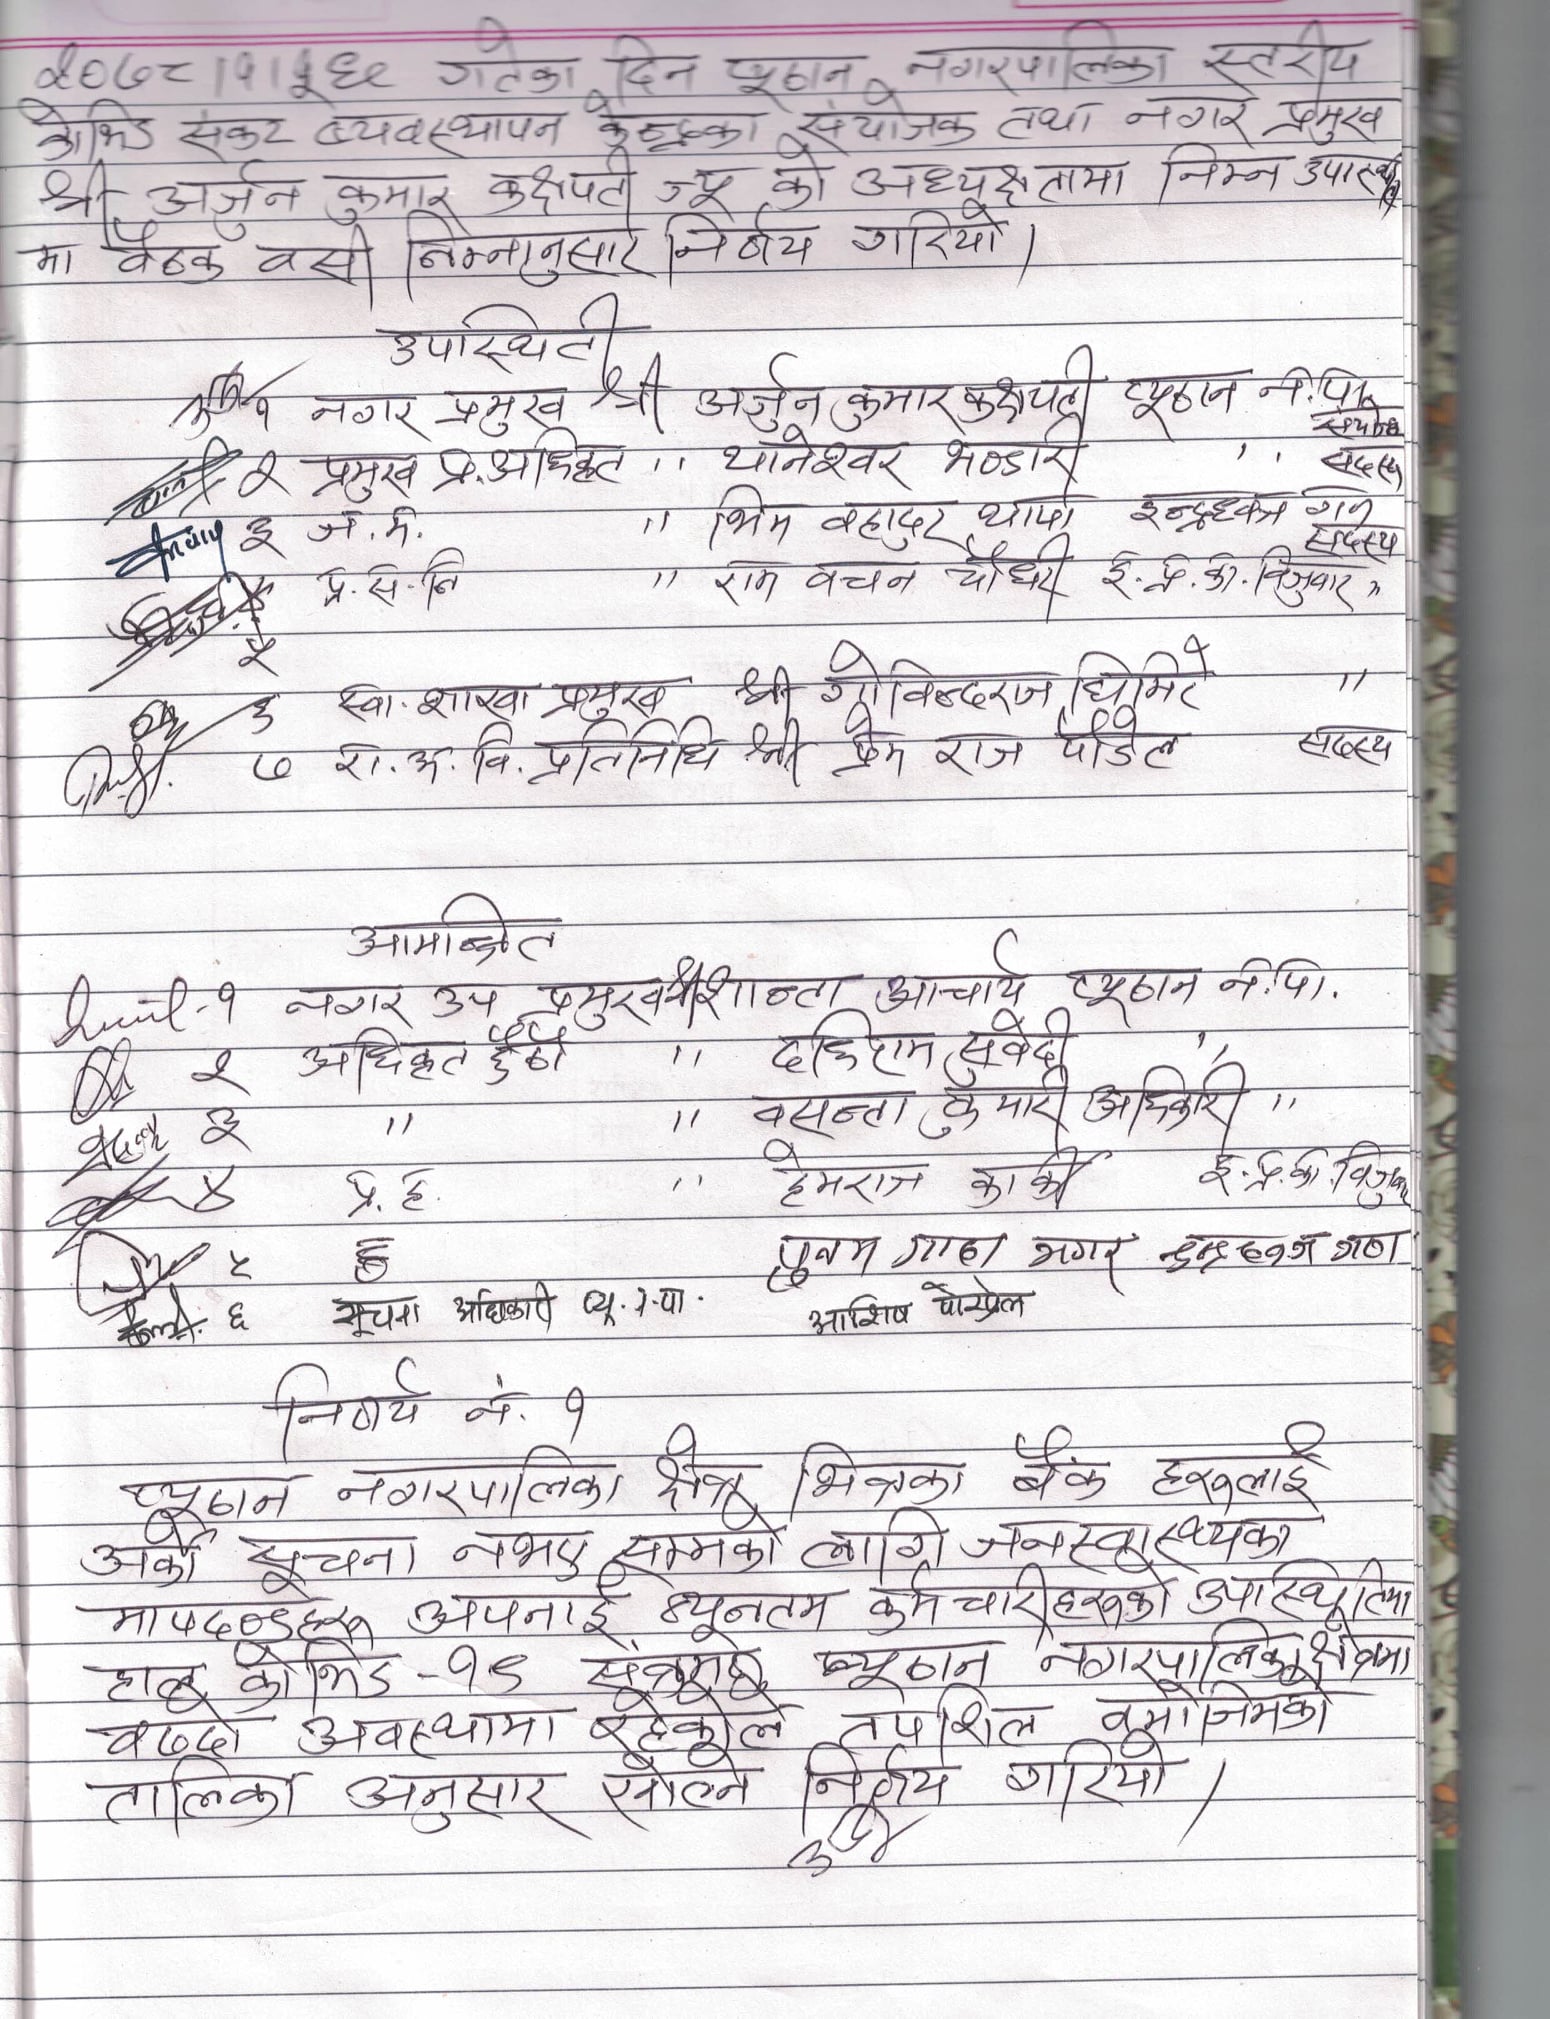 गतेका दिन प्यूठान नगरपालिका स्तरीय
कोभिड संकट व्यवस्थापन केन्द्रका संयोजक तथा नगर प्रमुख
श्री अर्जुन कुमार कक्षपती ज्यू को अध्यक्षतामा निम्न उपस्थिति
मा बैठक वसी निम्नानुसार निर्णय गरियो।
उपस्थिती
१ नगर प्रमुख श्री अर्जुन कुमार कक्षपती प्यूठान न.पा.
संयोजक
२ प्रमुख प्र. अधिकृत " थानेश्वर भण्डारी " सदस्य
३ " भिम वहादुर थापा इन्द्रध्वज गण
सदस्य
४ प्र. स. नि " राम वचन चौधरी ई. प्र. का. विजुवार "
५
६ स्वा. शाखा प्रमुख श्री गोविन्दराज घिमिरे "
७ रा. अ. वि. प्रतिनिधि श्री प्रेम राज पौडेल सदस्य
आमान्त्रित
१ नगर उप प्रमुख श्री शान्ता आचार्य प्यूठान न.पा.
२ अधिकृत छैठौं " दधिराम सुवेदी "
३ " " वसन्ता कुमारी अधिकारी "
४ प्र. ह. " हेमराज कार्की ई. प्र. का. विजुवार
५ मगर
६ सूचना अधिकारी प्यू. न. पा. आशिष पोख्रेल
निर्णय नं. १
प्यूठान नगरपालिका क्षेत्र भित्रका बैंक हरुलाई
अर्को सूचना नभए सम्मको लागि जनस्वास्थ्यका
मापदण्डहरु अपनाई न्यूनतम कर्मचारीहरुको उपास्थितिमा
हाल कोभिड -१९ संक्रमण प्यूठान नगरपालिका क्षेत्रमा
वढ्दो अवस्थामा रहेकोले तपशिल वमोजिमको
तालिका अनुसार खोल्ने निर्णय गरियो।